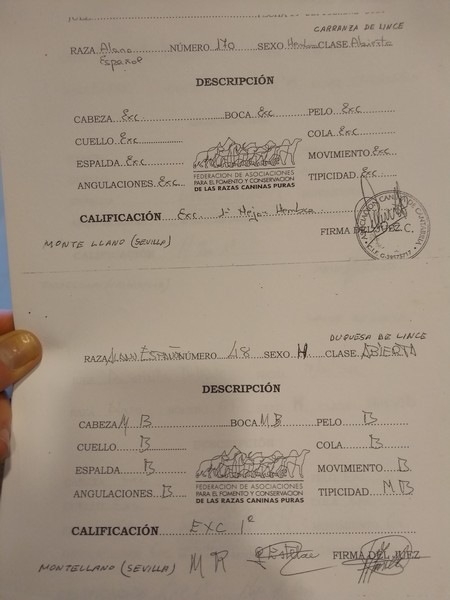 CARRANZA DE LINCE
RAZA Alano NÚMERO 170 SEXO Hembra CLASE Abierta
Español
DESCRIPCIÓN
CABEZA Exc BOCA Exc PELO Exc
CUELLO Exc COLA Exc
ESPALDA Exc MOVIMIENTO Exc
FEDERACION DE ASOCIACIONES
PARA EL FOMENTO Y CONSERVACION
DE LAS RAZAS CANINAS PURAS
ANGULACIONES Exc TIPICIDAD Exc
CALIFICACIÓN Exc 1ª Mejor Hembra
FIRMA DEL JUEZ C.
MONTELLANO (SEVILLA)
DUQUESA DE LINCE
RAZA ALANO ESPAÑOL NÚMERO 48 SEXO H CLASE ABIERTA
DESCRIPCIÓN
CABEZA M B BOCA M B PELO B
CUELLO B COLA B
ESPALDA B MOVIMIENTO B
FEDERACION DE ASOCIACIONES
PARA EL FOMENTO Y CONSERVACION
DE LAS RAZAS CANINAS PURAS
ANGULACIONES B TIPICIDAD M B
CALIFICACIÓN EXC 1ª
FIRMA DEL JUEZ
MONTELLANO (SEVILLA)